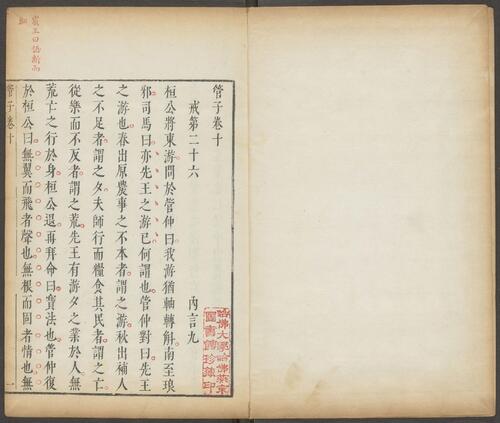 管子卷十
戒第二十六 內言九
哈佛大學哈佛燕京
圖書館珍藏印
桓公將東游問於管仲曰我游猶軸轉斛南至琅
邪司馬曰亦先王之游已何謂也管仲對曰先王
之游也春出原農事之不本者謂之游秋出補人
之不足者謂之夕夫師行而糧食其民者謂之亡
從樂而不反者謂之荒先王有游夕之業於人無
荒亡之行於身桓公退再拜命曰寶法也管仲復
於桓公曰無翼而飛者聲也無根而固者情也無
管子卷十 一
王曰語新而